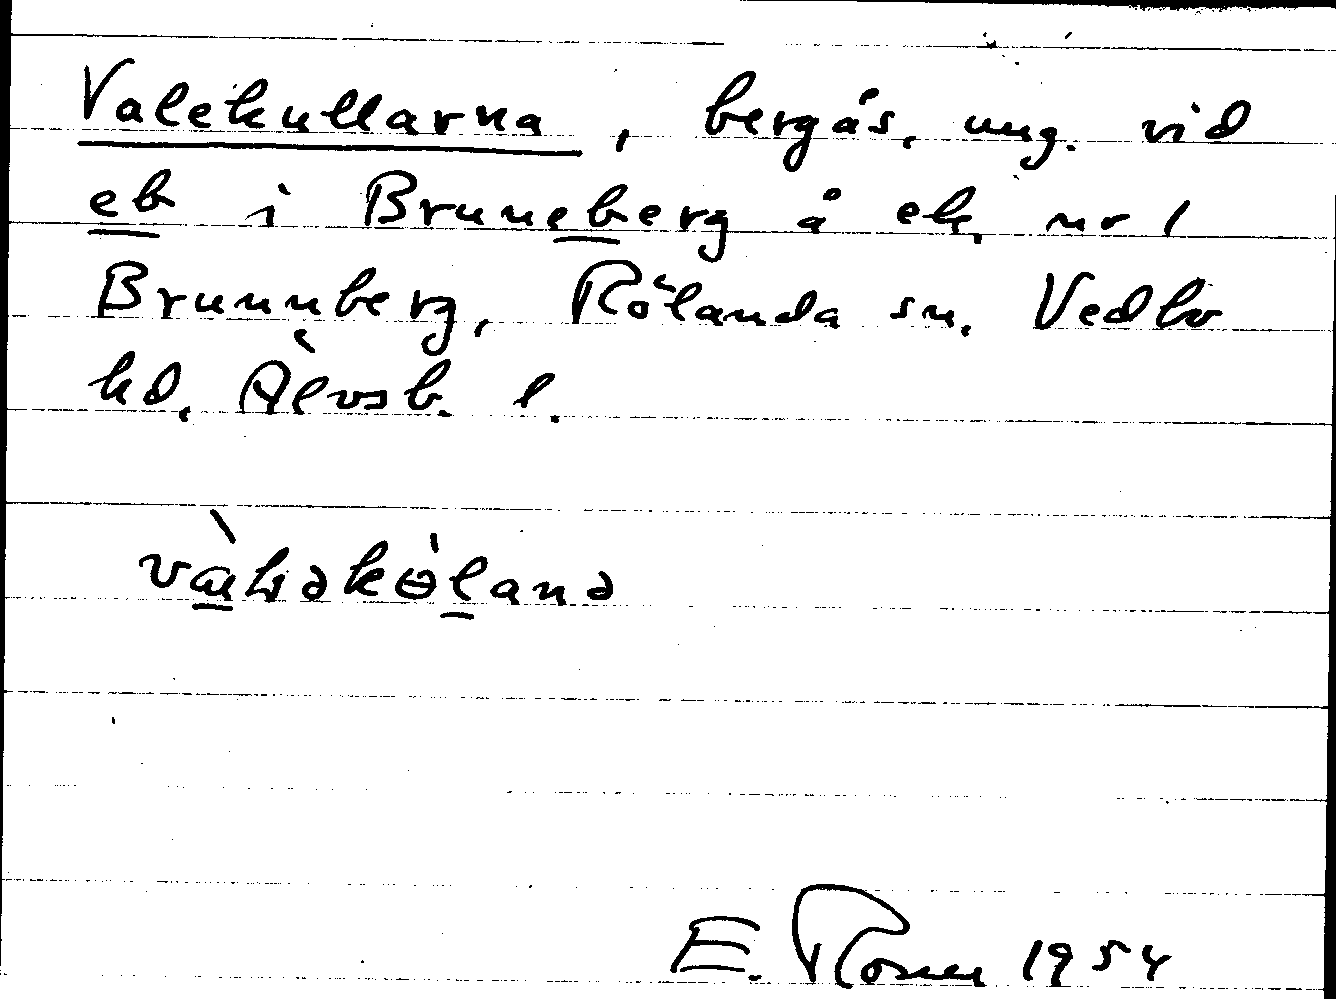 Valekullarna, bergås, ung. vid
eb i Bruneberg å ek. nr 1
Brunnberg, Rölanda sn. Vedbo
hd. Älvsb. l.
E. Rosen 1954